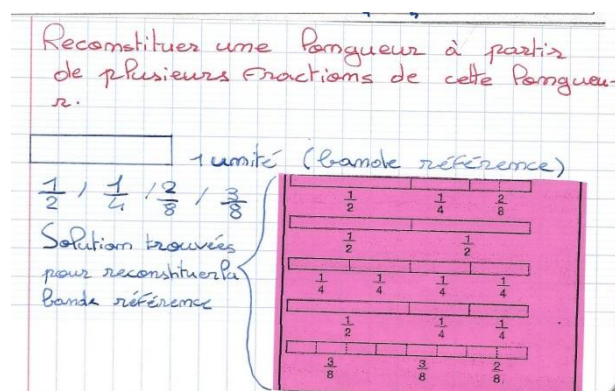 Reconstituer une longueur à partir
de plusieurs fractions de cette longueu-
r.
1 unité (bande référence)
1/2 / 1/4 / 2/8 / 3/8
Solution trouvées
pour reconstituer la
bande référence
1/2 1/4 2/8
1/2 1/2
1/4 1/4 1/4 1/4
1/2 1/4 1/4
3/8 3/8 2/8